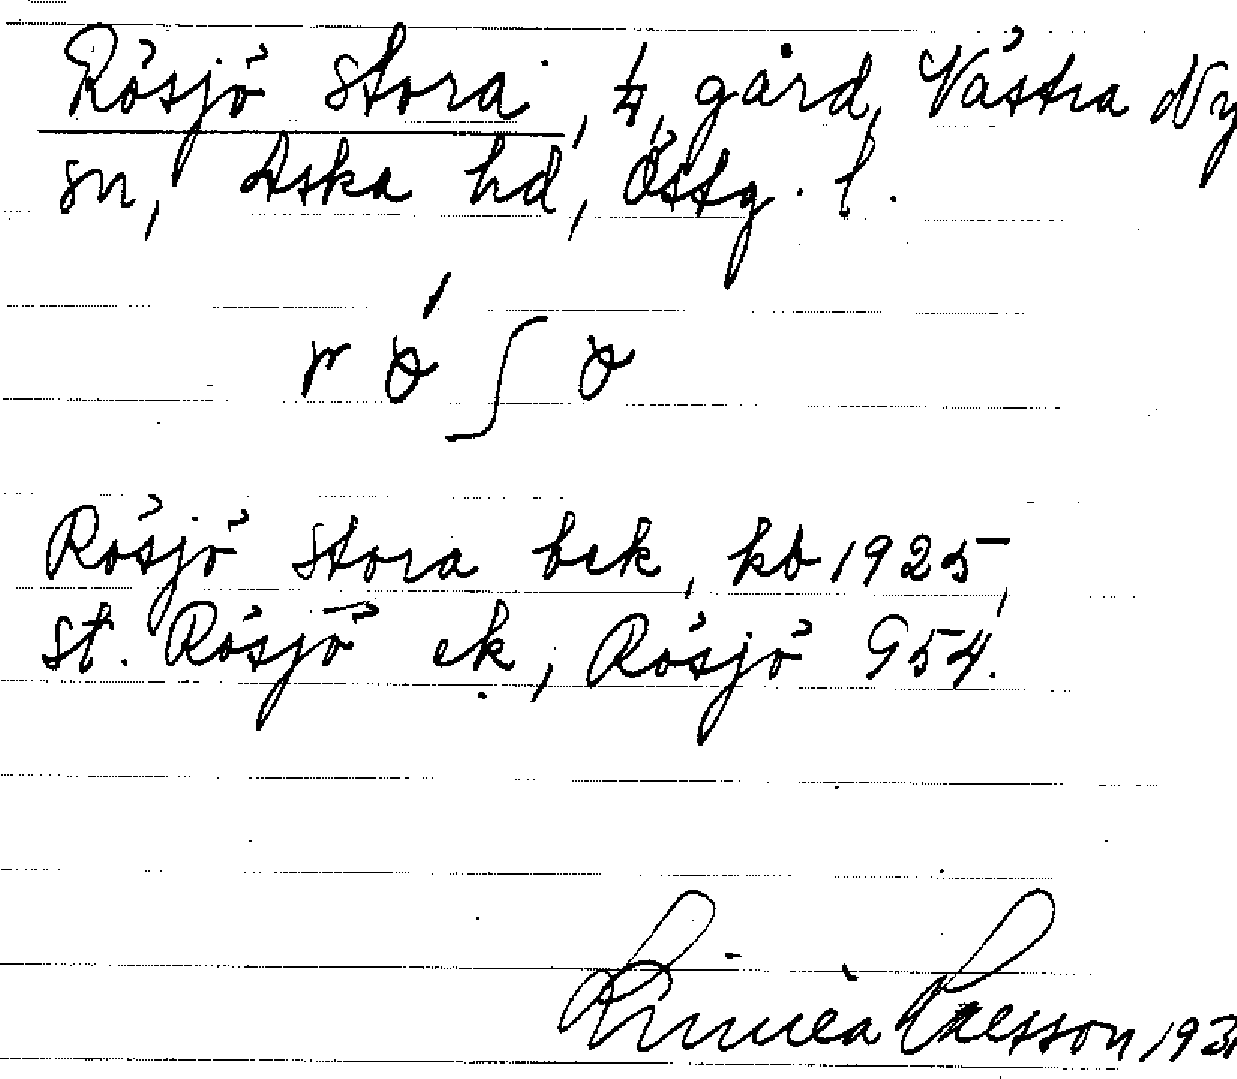 Rösjö Stora, ¼, gård, Västra Ny
sn, Aska hd, Östg. l.
Rösjö Stora bek, kb 1925,
St. Rösjö ek, Rösjö G54.
Linnéa Larsson